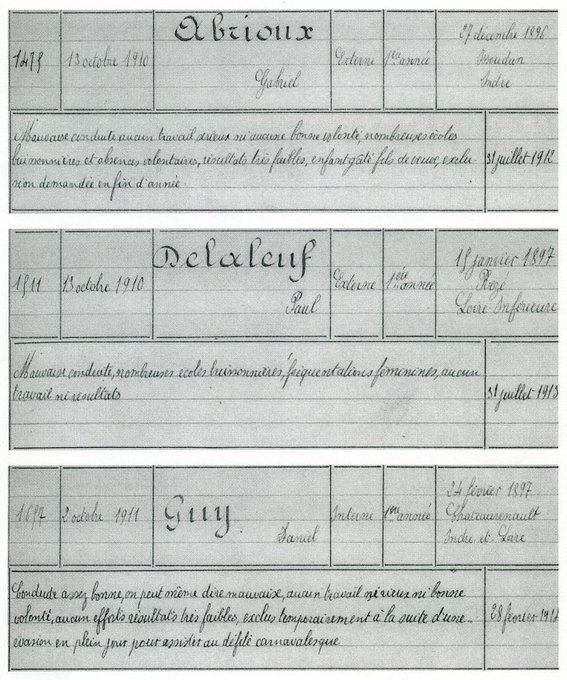 1475 13 octobre 1910 Abrioux Gabriel Externe 1ère année 27 décembre 1896 Issoudun Indre
Mauvaise conduite aucun travail sérieux ni aucune bonne volonté, nombreuses écoles
buissonnières et absences volontaires, résultats très faibles, enfant gâté fils de veuve, exclu-
sion demandée en fin d'année.
31 juillet 1912
1511 13 octobre 1910 Delaleuf Paul Externe 1ère année 15 janvier 1897 Rezé Loire Inférieure
Mauvaise conduite, nombreuses écoles buissonnières, fréquentations féminines, aucun
travail ni résultats
31 juillet 1913
1697 2 octobre 1911 Guy Daniel Interne 1ère année 24 février 1897 Chateaurenault Indre et Loire
Conduite assez bonne, on peut même dire mauvaise, aucun travail sérieux ni bonne
volonté, aucun efforts résultats très faibles, exclus temporairement à la suite d'une
évasion en plein jour pour assister au défilé carnavalesque
28 février